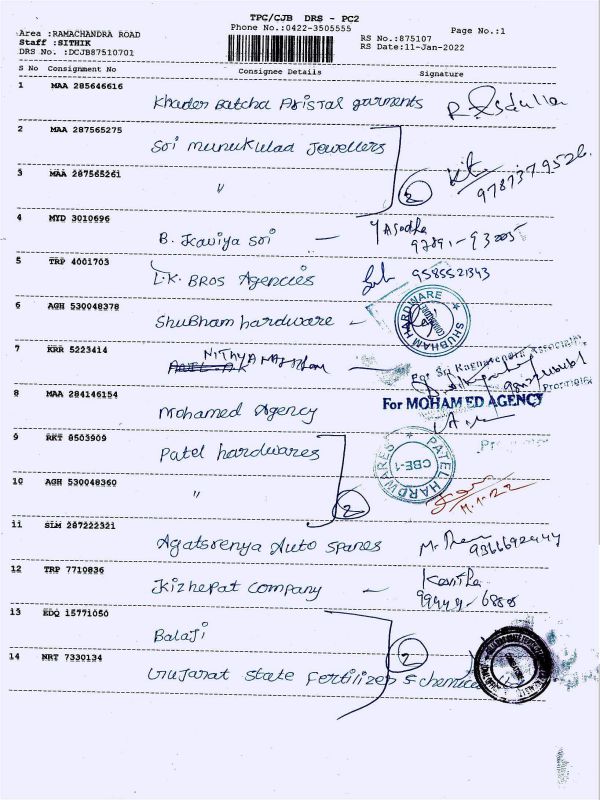 TPC/CJB DRS - PC2
Phone No.:0422-3505555
Page No.:1
Area :RAMACHANDRA ROAD
RS No.:875107
Staff :SITHIK
RS Date:11-Jan-2022
DRS No. :DCJB87510701
S No Consignment No Consignee Details Signature
1 MAA 285646616
Khader Batcha Aristal garments
2 MAA 287565275
Sri Munukulad Jewellers
3 MAA 287565261
" 2 9787379526
4 MYD 3010696
B. Kaviya Sri — Yasodha
5 TRP 4001703
L.K. BROS Agencies 9585521343
6 AGH 530048378
Shubham hardware - SHUBHAM HARDWARE
7 KRR 5223414
8 MAA 284146154
For MOHAMED AGENCY
Mohamed Agency
9 RKT 8503909
Patel hardwares PATEL HARDWARES CBE-1
10 AGH 530048360
" 2 11.1.22
11 SLM 287222321
Agatsrenya Auto spares
12 TRP 7710836
Kizhepat company — Kavitha
13 EDQ 15771050
Balaji 2
14 NRT 7330134
Gujarat State Fertilizer & chemical